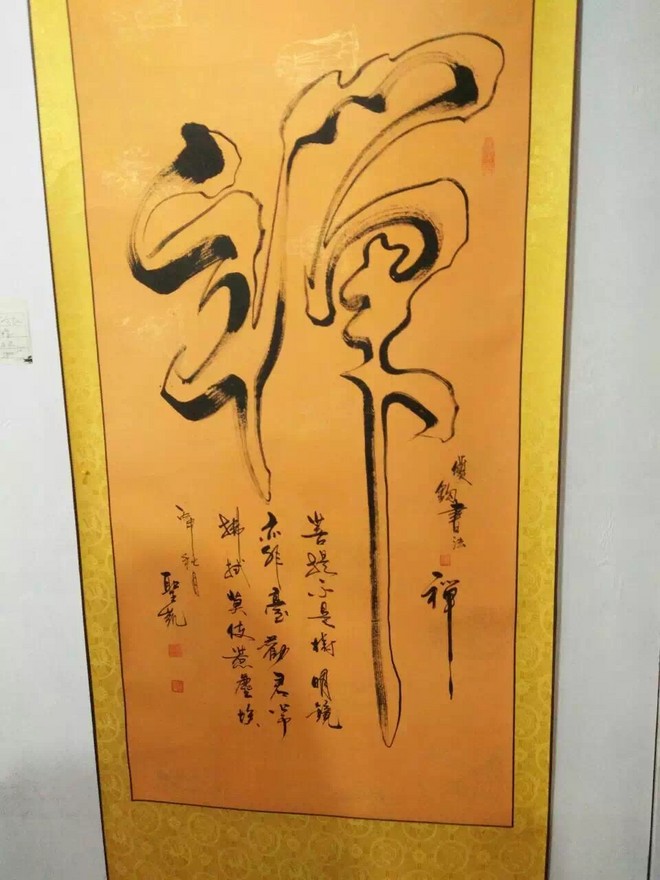 禪
雙鉤書法
禪
菩提不是樹明鏡
亦非臺勸君常
拂拭莫使惹塵埃
年秋月
聖